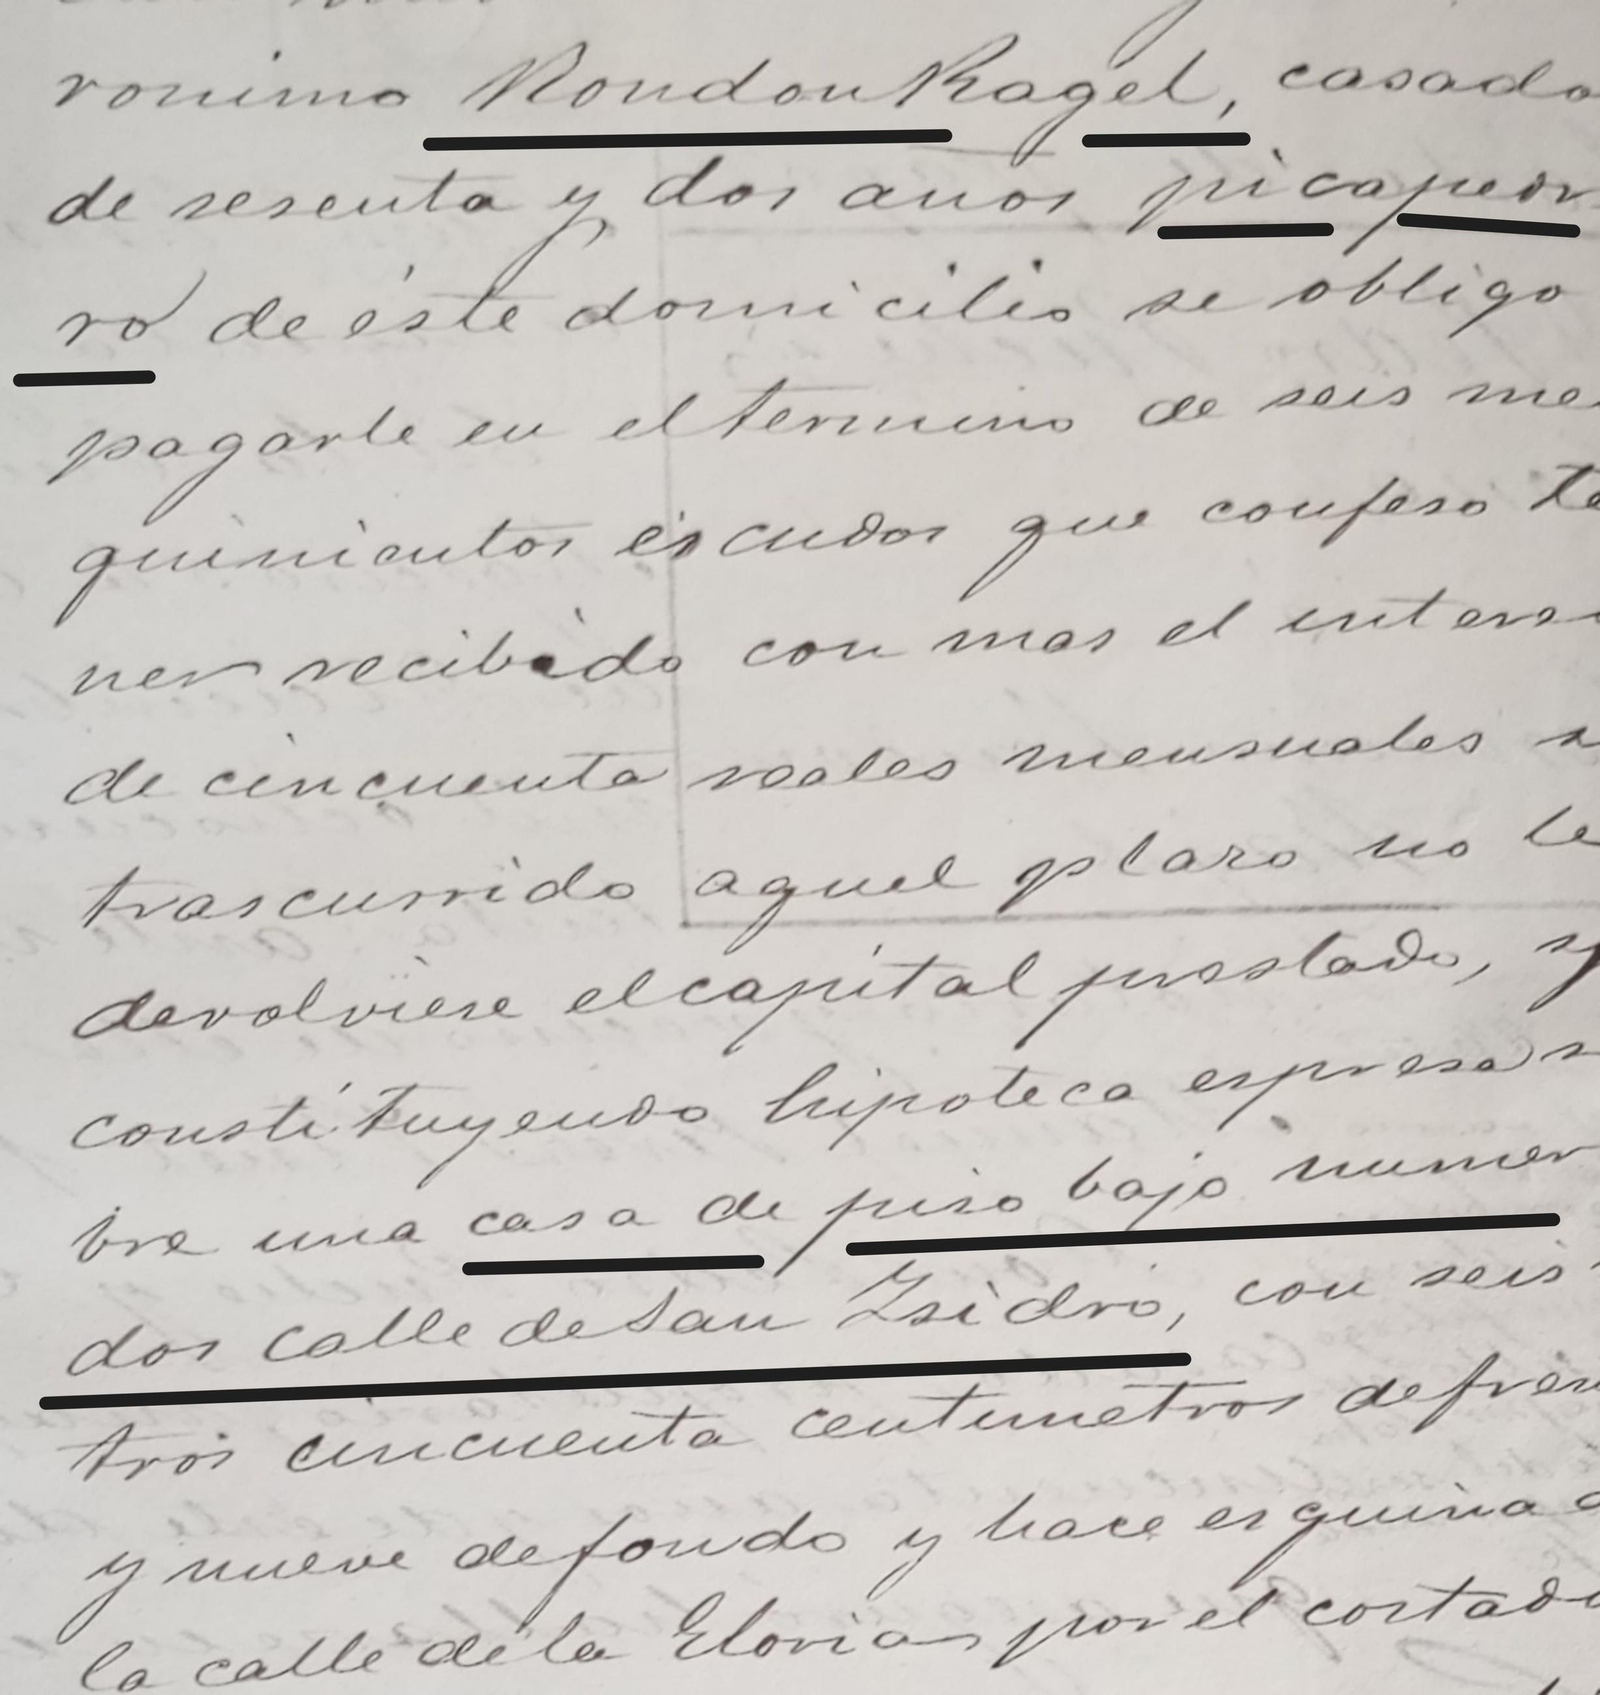 ronimo Rondon Ragel, casado
de sesenta y dos años picapedr
ro de éste domicilio se obligo
pagarle en el termino de seis me
quinientos éscudos que confesó te
ner recibido con mas el interes
de cincuenta reales mensuales s
trascurrido aquel plazo no le
devolviese el capital prestado, y
constituyendo hipoteca espresa s
bre una casa de piso bajo numer
dos calle de San Isidro, con seis
tros cincuenta centimetros de fren
y nueve de fondo y hace esquina a
la calle de la Gloria por el costado